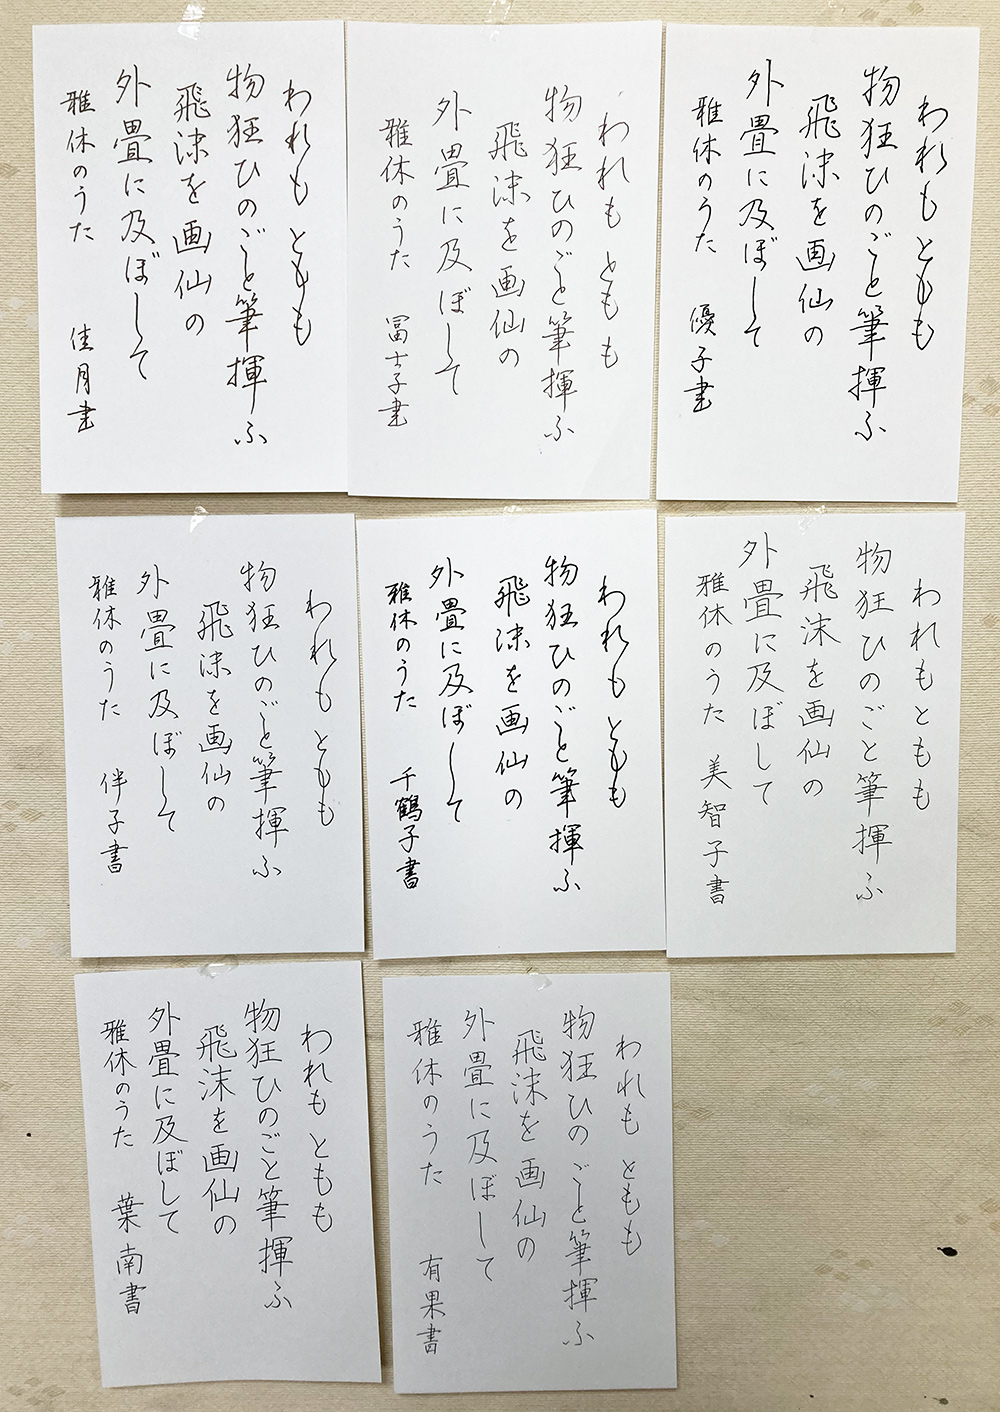 われもともも
物狂ひのごと筆揮ふ
飛沫を画仙の
外畳に及ぼして
雅休のうた 佳月書
われもともも
物狂ひのごと筆揮ふ
飛沫を画仙の
外畳に及ぼして
雅休のうた 冨士子書
われもともも
物狂ひのごと筆揮ふ
飛沫を画仙の
外畳に及ぼして
雅休のうた 優子書
われもともも
物狂ひのごと筆揮ふ
飛沫を画仙の
外畳に及ぼして
雅休のうた 伴子書
われもともも
物狂ひのごと筆揮ふ
飛沫を画仙の
外畳に及ぼして
雅休のうた 千鶴子書
われもともも
物狂ひのごと筆揮ふ
飛沫を画仙の
外畳に及ぼして
雅休のうた 美智子書
われもともも
物狂ひのごと筆揮ふ
飛沫を画仙の
外畳に及ぼして
雅休のうた 葉南書
われもともも
物狂ひのごと筆揮ふ
飛沫を画仙の
外畳に及ぼして
雅休のうた 有果書